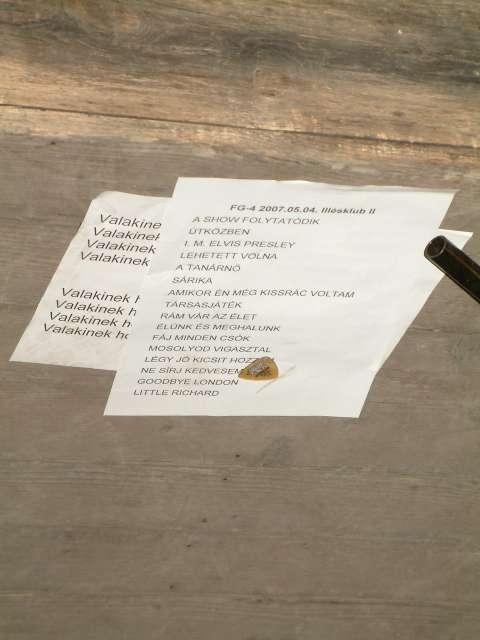 FG-4 2007.05.04. Illésklub II
A SHOW FOLYTATÓDIK
ÚTKÖZBEN
I. M. ELVIS PRESLEY
LEHETETT VOLNA
A TANÁRNŐ
SÁRIKA
AMIKOR ÉN MÉG KISSRÁC VOLTAM
TÁRSASJÁTÉK
RÁM VÁR AZ ÉLET
ÉLÜNK ÉS MEGHALUNK
FÁJ MINDEN CSÓK
MOSOLYOD VIGASZTAL
LÉGY JÓ KICSIT
NE SÍRJ KEDVESEM
GOODBYE LONDON
LITTLE RICHARD
Valakinek
Valakinek
Valakinek
Valakinek
Valakinek
Valakinek
Valakinek